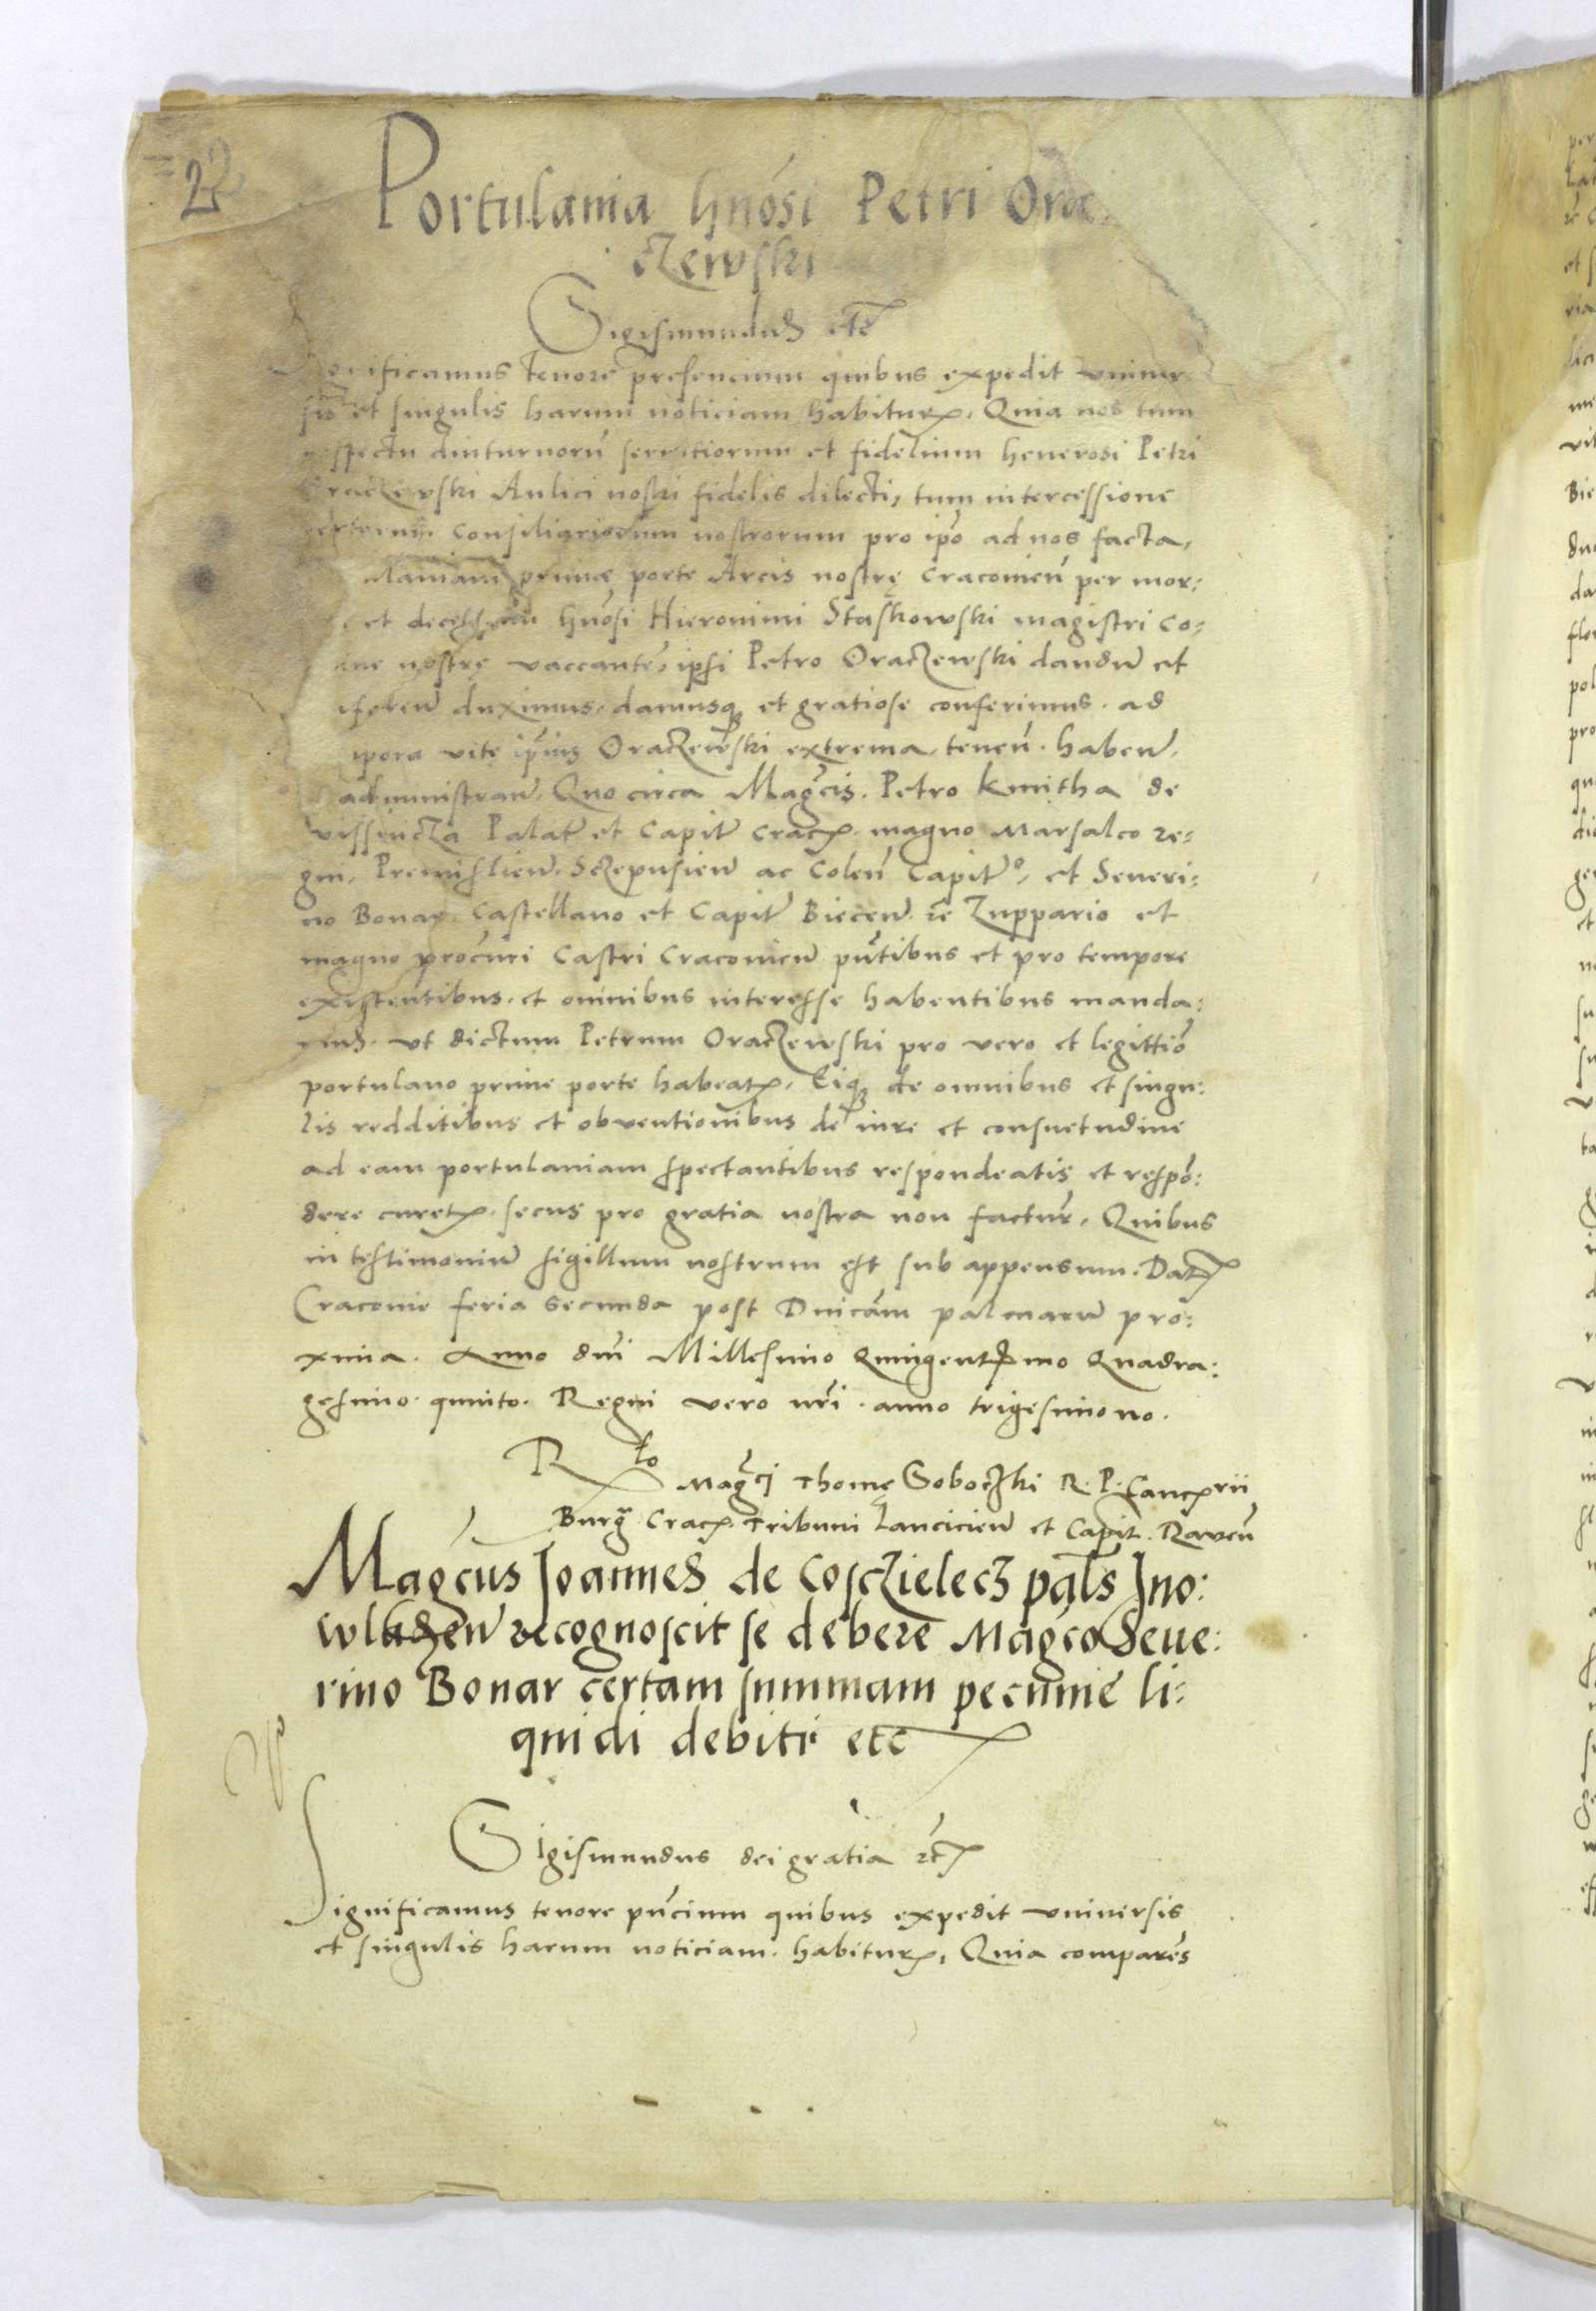 22
Portulania hnósi Petri Orac
czewski
Sigismundus etc
Significamus tenore presencium quibus expedit univer
sis et singulis harum noticiam habitur. Quia nos tum
respectu diuturnorū servitiorum et fidelium henerosi Petri
Oraczewski Aulici nostri fidelis dilecti, tum intercessione
certorum consiliariorum nostrorum pro ipō ad nos facta,
laniam primæ porte Arcis nostrę Craconień per mor:
et decessum hnōsi Hieronimi Staskowski magistri co:
ine nostrę vaccantē, ipsi Petro Oraczewski dandū et
feren̄ duximus, damusq; et gratiose conferimus. ad
mpora vite ipīus Oraczewski extrema, teneñ. haben̄.
administran̄. Quo circa Magcis. Petro Kmitha de
vissnicza Palat̄ et Capit̄ Crac. magno Marsalco re:
gni, Premislien̄. Sczepusien̄ ac Coleñ Capit̄o, et Severi:
no Bonar. Castellano et Capit̄ Biecen̄. re Zuppario et
magno procuri Castri Craconien̄ pñtibus et pro tempore
existentibus. et omnibus interesse habentibus manda:
mus. ut dictum Petrum Oraczewski pro vero et legittiō
portulano prime porte habeat. Eiq; de omnibus et singu:
lis redditibus et obventionibus de iure et consuetudine
ad eam portulaniam spectantibus respondeatis et respō:
dere curet. secus pro gratia nostra non factur̄. Quibus
in testimoniū sigillum nostrum est sub appensum. Dat
Craconie feria secunda post Dnicam palmarū pro:
xima. Anno dnī Millesimo Quingentesimo Quadra:
gesimo. quinto. Regni vero nrī. anno trigesimo no.
Rlo
Magci Thomę Soboczki R. P. Cancrii
Burg Crac. Tribuni Lancicien̄ et Capit. Raveñ
Magcus Joannes de Cosczielecz pals Jno:
wladzen̄ recognoscit se debere Magco Seue:
rino Bonar certam summam pecunie li:
quidi debiti etc
Sigismundus dei gratia etc
Significamus tenore pñcium quibus expedit universis
et singulis harum noticiam. habitur, Quia comparēs